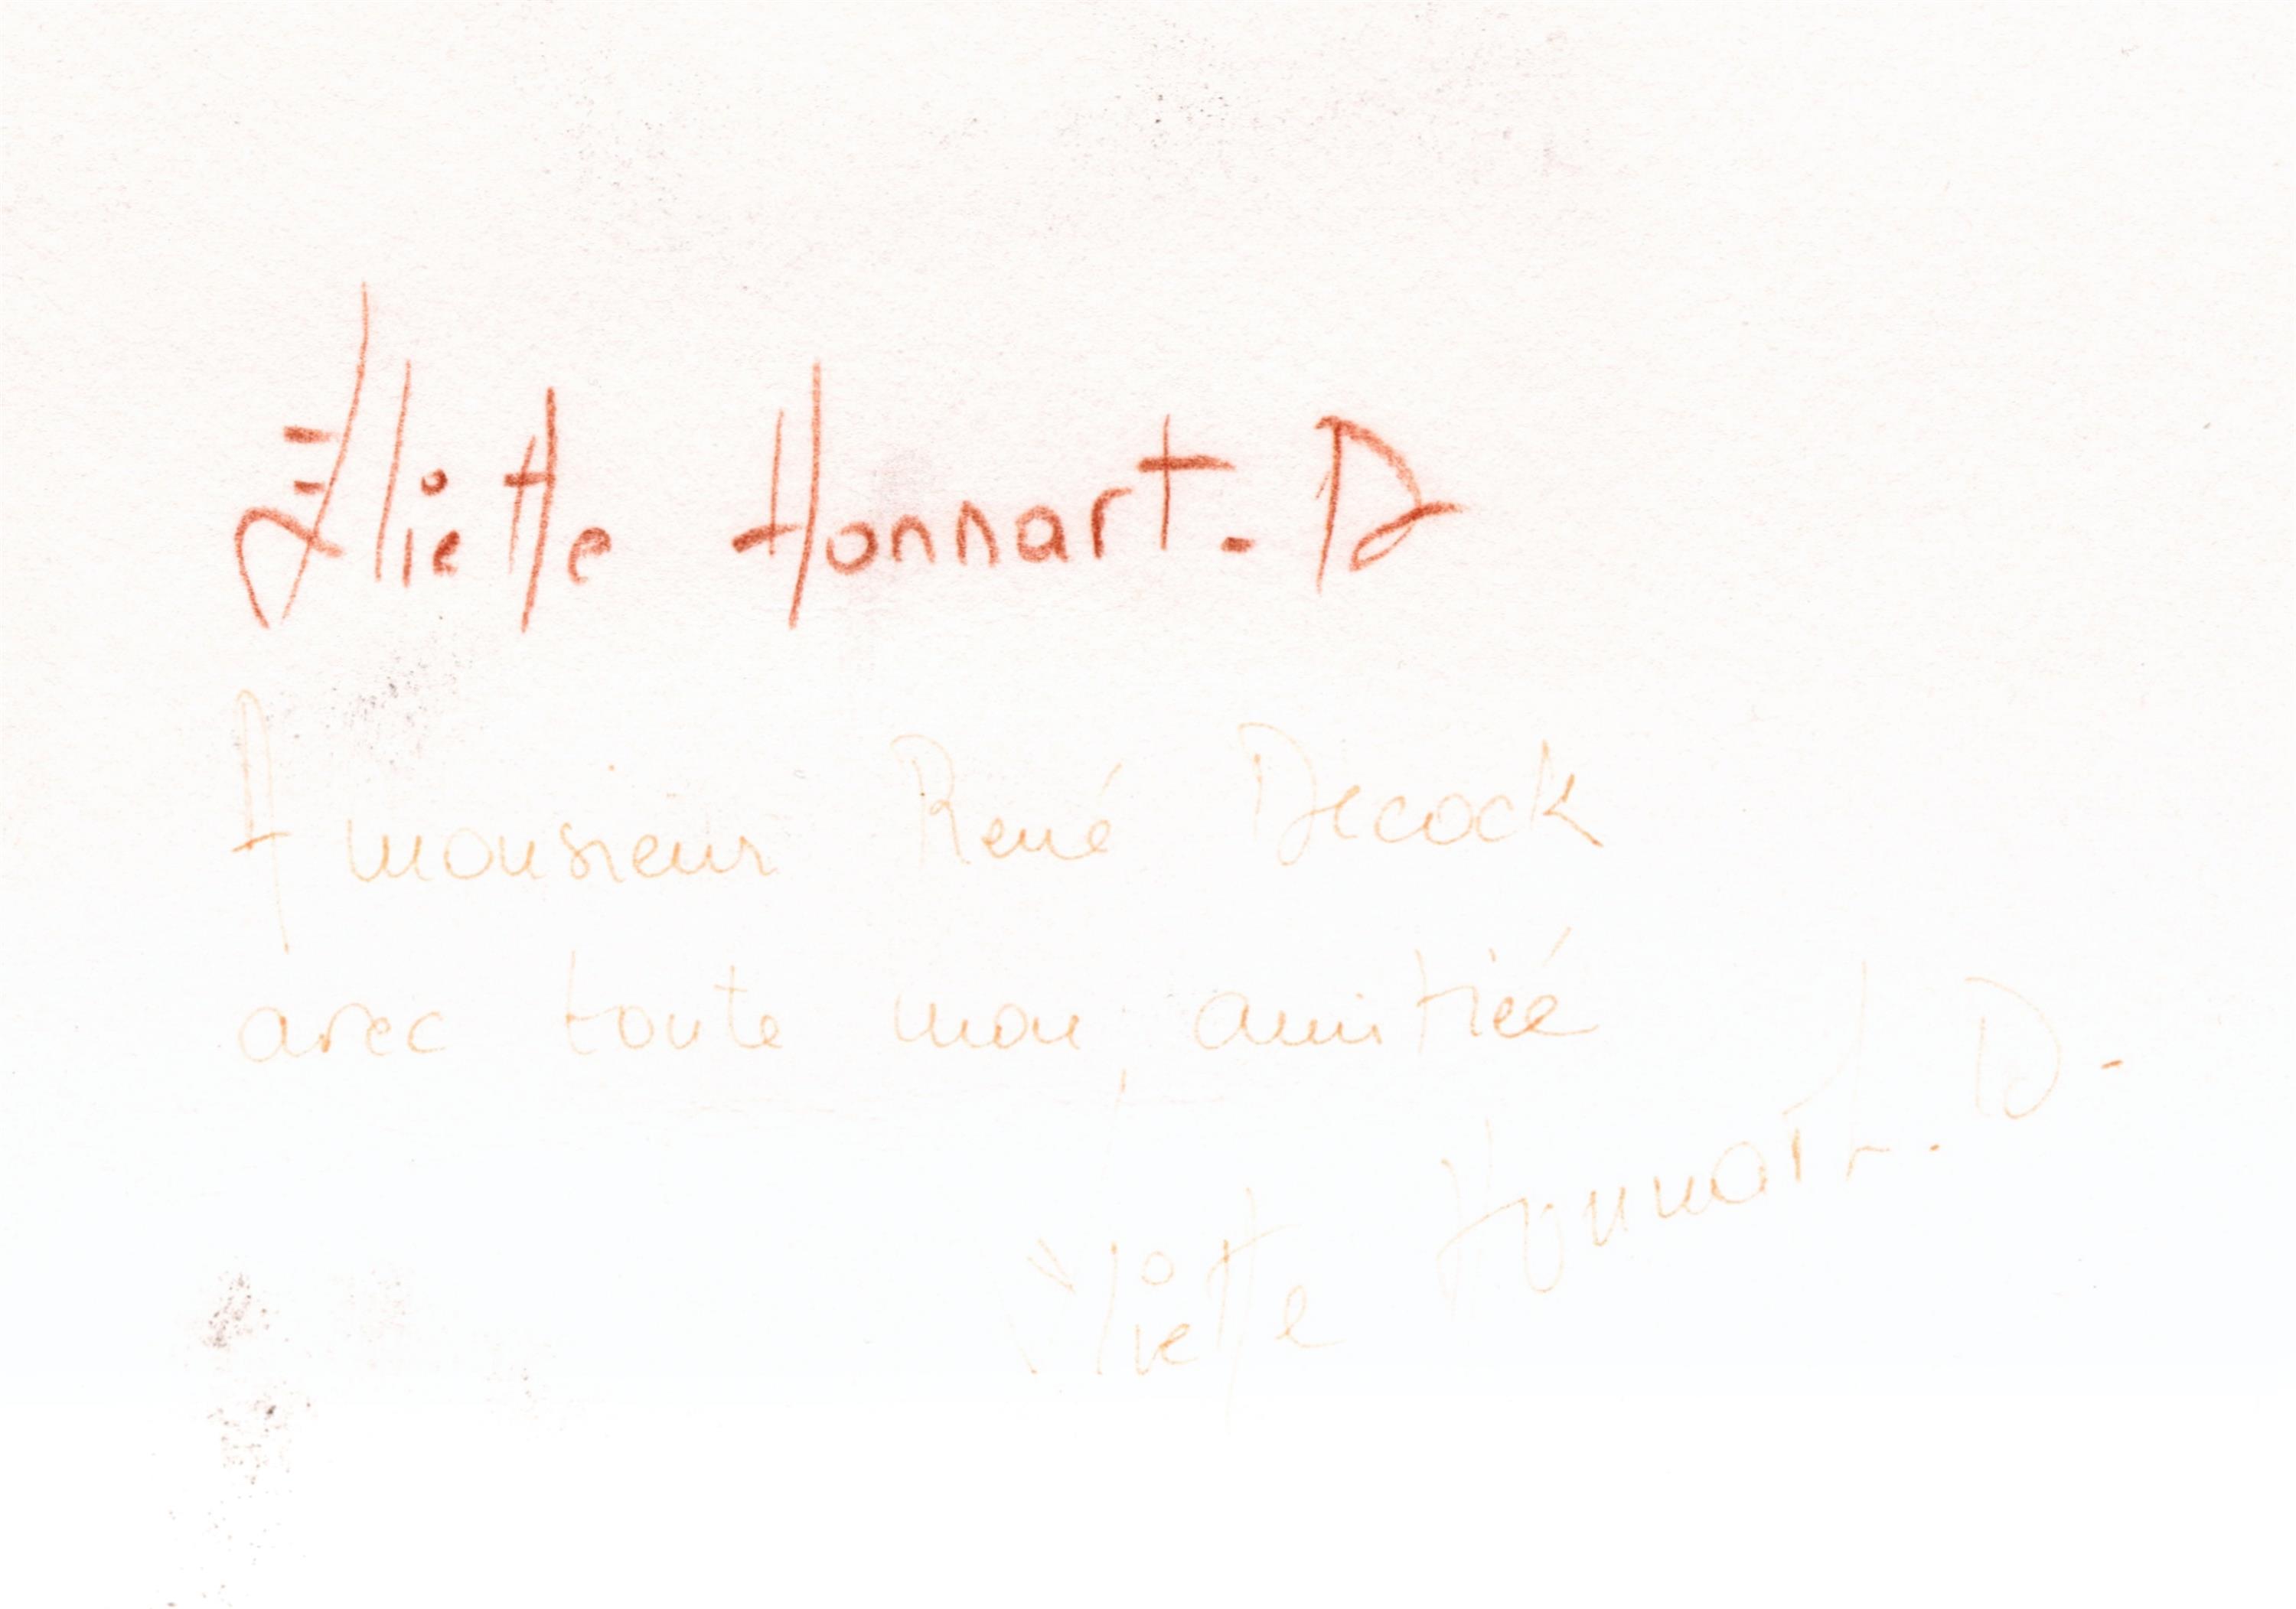 Eliette Honnart. D
A monsieur René Decock
avec toute mon amitiée
Eliette Honnart. D.